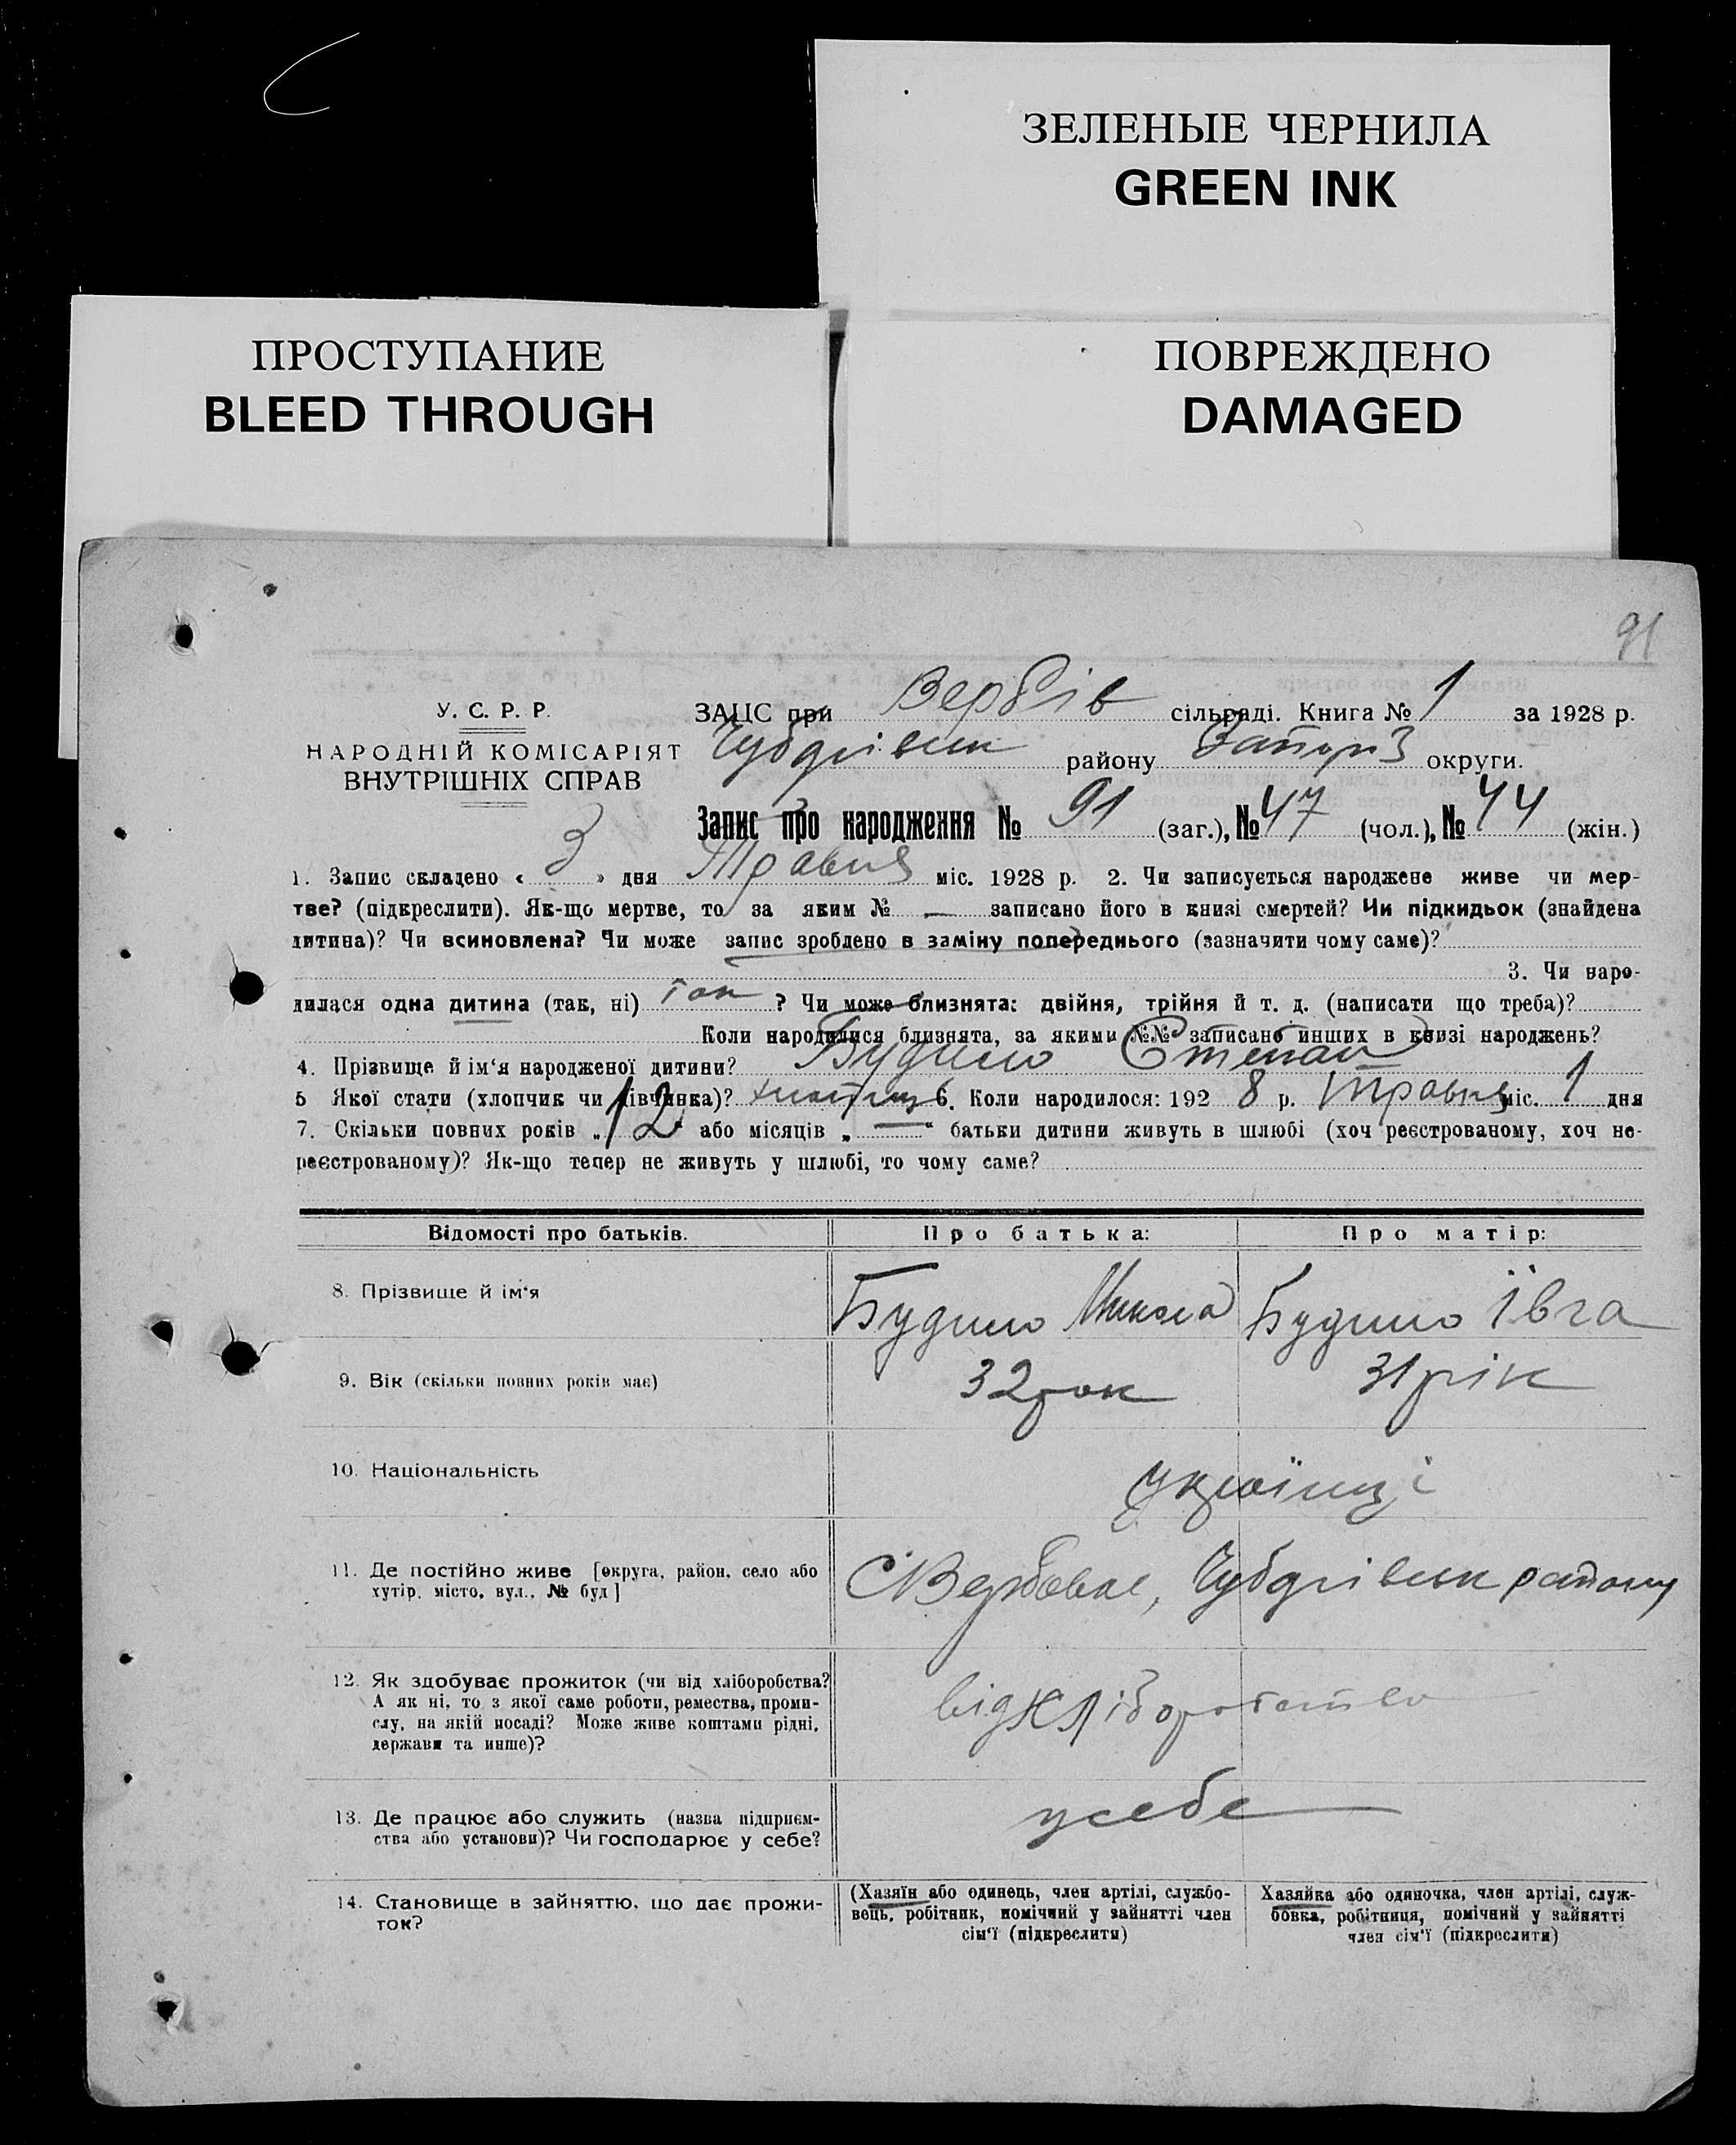 ЗЕЛЕНЫЕ ЧЕРНИЛА
GREEN INK
ПРОСТУПАНИЕ
BLEED THROUGH
ПОВРЕЖДЕНО
DAMAGED
91
У. С. Р. Р.
НАРОДНІЙ КОМІСАРІЯТ
ВНУТРІШНІХ СПРАВ
ЗАЦС при Вербів сільраді. Книга № 1 за 1928 р.
Чубарівськ району Запоріз округи.
Запис про народження № 91 (заг.), № 47 (чол.), № 44 (жін.)
1. Запис складено « 3 » дня Травня міс. 1928 р. 2. Чи записується народжене живе чи мер-
тве? (підкреслити). Як-що мертве, то за яким № — записано його в книзі смертей? Чи підкидьок (знайдена
дитина)? Чи всиновлена? Чи може запис зроблено в заміну попереднього (зазначити чому саме)?
3. Чи наро-
дилася одна дитина (так, ні) так ? Чи може близнята: двійня, трійня й т. д. (написати що треба)?
Коли народилися близнята, за якими №№ записано инших в книзі народжень?
4. Прізвище й ім'я народженої дитини? Будило Степан
5 Якої стати (хлопчик чи дівчинка)? хлопчик 6. Коли народилося: 192 8 р. Травня міс. 1 дня
7. Скільки повних років „ 12 " або місяців „ — " батьки дитини живуть в шлюбі (хоч реєстрованому, хоч не-
реєстрованому)? Як-що тепер не живуть у шлюбі, то чому саме?
Відомості про батьків. Про батька: Про матір:
8. Прізвище й ім'я Будило Микола Будило Ївга
9. Вік (скільки повних років має) 32 рок 31 рік
10. Національність українці
11. Де постійно живе [округа, район, село або
хутір, місто, вул., № буд]
С Вербове, Чубарівськ району
12. Як здобуває прожиток (чи від хліборобства?
А як ні, то з якої саме роботи, ремества, проми-
слу, на якій посаді? Може живе коштами рідні,
держави та инше)?
від хліборобства
13. Де працює або служить (назва підприєм-
ства або установи)? Чи господарює у себе?
у себе
14. Становище в зайняттю, що дає прожи-
ток?
(Хазяїн або одинець, член артілі, службо-
вець, робітник, помічний у зайнятті член
сім'ї (підкреслити)
Хазяйка або одиночка, член артілі, служ-
бовка, робітниця, помічний у зайнятті
член сім'ї (підкреслити)